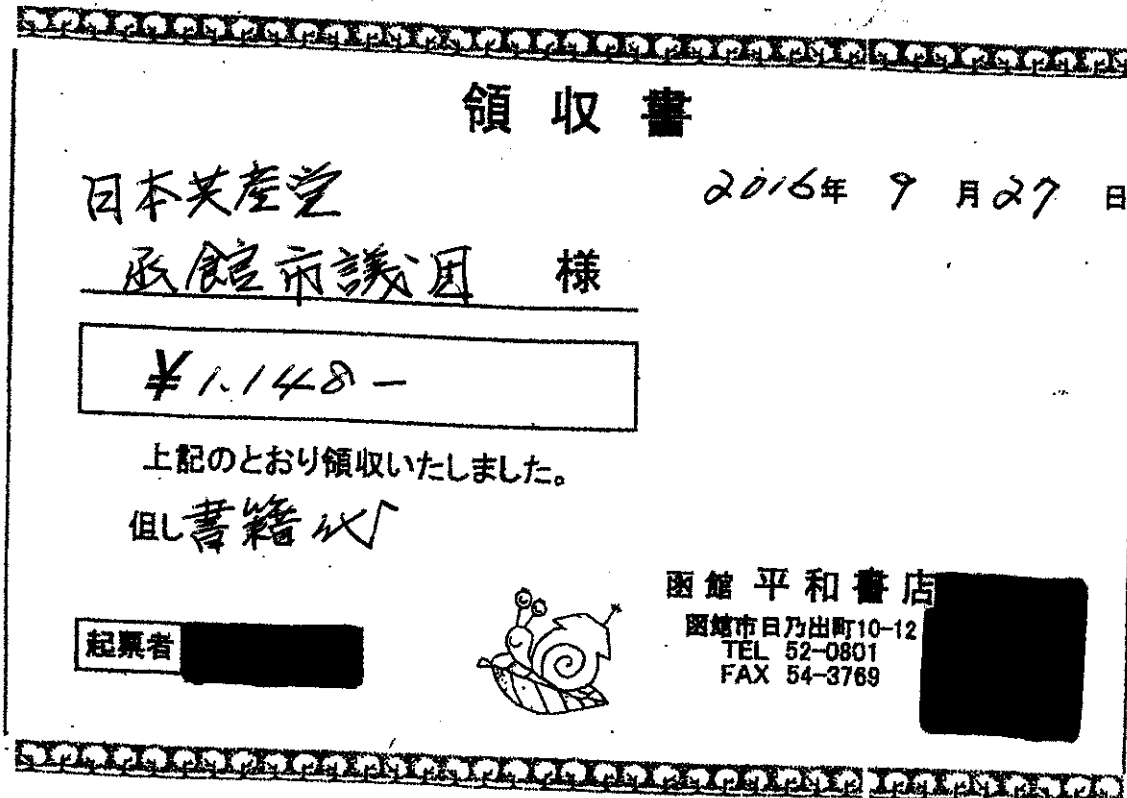 領収書
日本共産党
2016年 9月27日
函館市議団 様
¥1.148-
上記のとおり領収いたしました。
但し書籍代
起票者
函館 平和書店
函館市日乃出町10-12
TEL 52-0801
FAX 54-3769